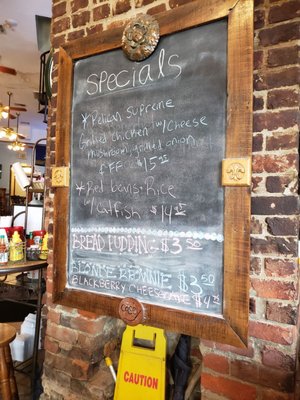 Specials
* Pelican Supreme
Grilled chicken w/ cheese
mushroom, grilled onion
FF $15
* Red beans + Rice
w/ catfish $14
BREAD PUDDING $3.50
BLONDE BROWNIE $3.50
BLACKBERRY CHEESECAKE $4
CAUTION